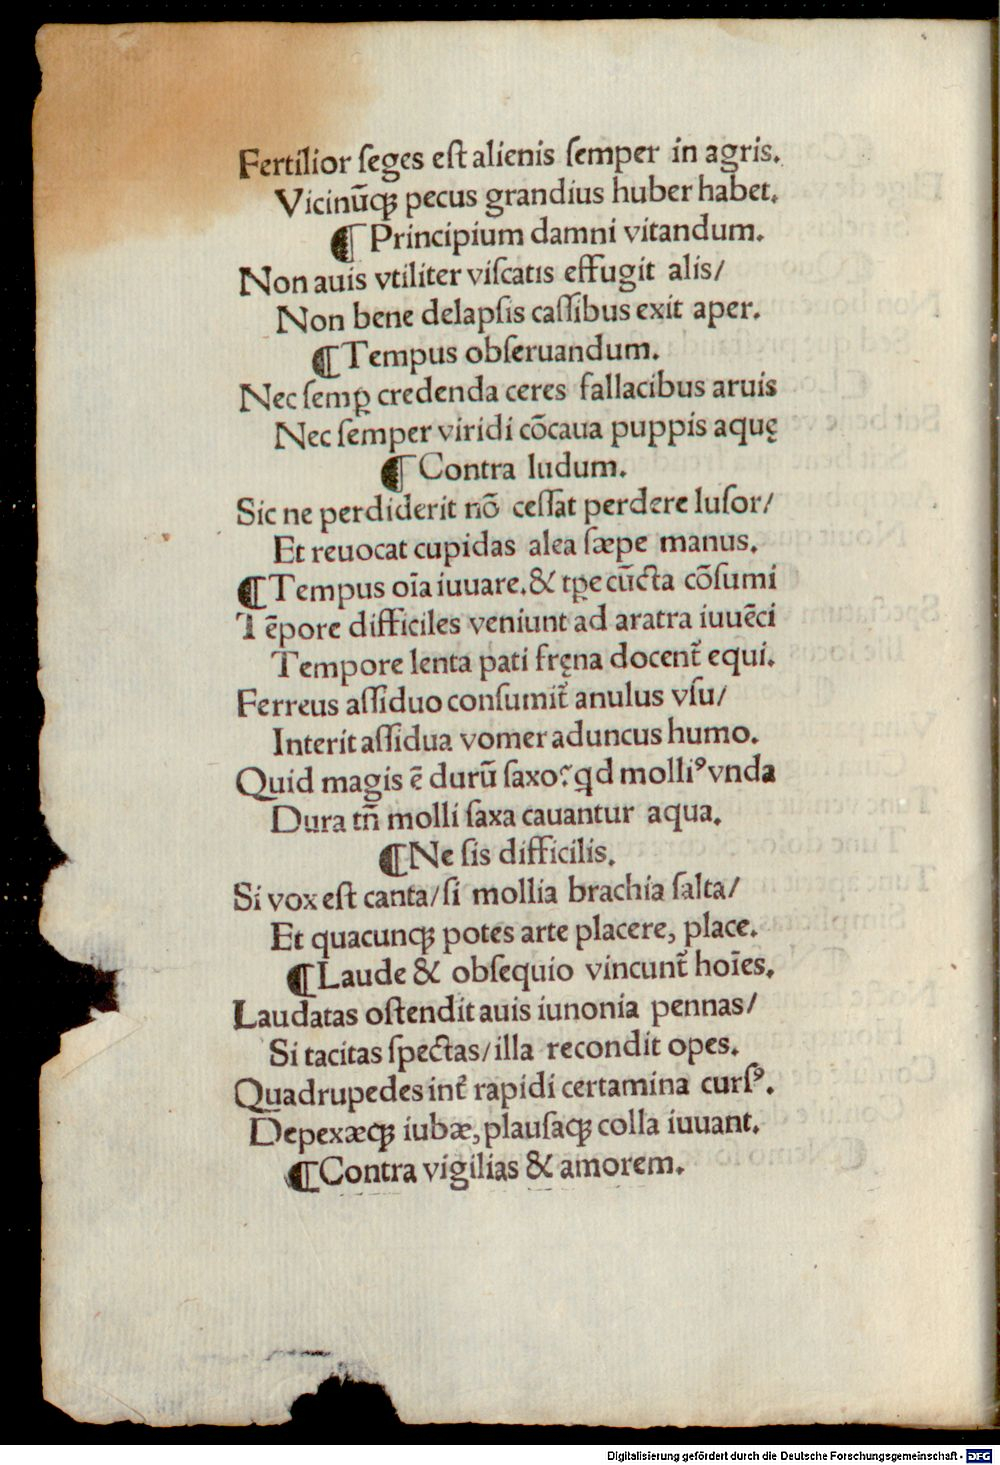 Fertilior ſeges eſt alienis ſemper in agris.
Vicinūqꝫ pecus grandius huber habet.
¶ Principium damni vitandum.
Non auis vtiliter viſcatis effugit alis/
Non bene delapſis caſſibus exit aper.
¶ Tempus obſeruandum.
Nec ſemꝑ credenda ceres fallacibus aruis
Nec ſemper viridi cōcaua puppis aquę
¶ Contra ludum.
Sic ne perdiderit nō ceſſat perdere luſor/
Et reuocat cupidas alea ſæpe manus.
¶ Tempus oīa iuuare. & tꝑe cūcta cōſumi
Tēpore difficiles veniunt ad aratra iuuēci
Tempore lenta pati fręna docent̄ equi.
Ferreus aſſiduo conſumit̄ anulus vſu/
Interit aſſidua vomer aduncus humo.
Quid magis ē durū ſaxo? qd molliꝰ vnda
Dura tn̄ molli ſaxa cauantur aqua.
¶ Ne ſis difficilis.
Si vox eſt canta/ ſi mollia brachia ſalta/
Et quacunqꝫ potes arte placere, place.
¶ Laude & obſequio vincunt̄ hoīes.
Laudatas oſtendit auis iunonia pennas/
Si tacitas ſpectas/ illa recondit opes.
Quadrupedes int̄ rapidi certamina curſꝰ.
Depexæqꝫ iubæ, plauſaqꝫ colla iuuant.
¶ Contra vigilias & amorem.
Digitalisierung gefördert durch die Deutsche Forschungsgemeinschaft - DFG